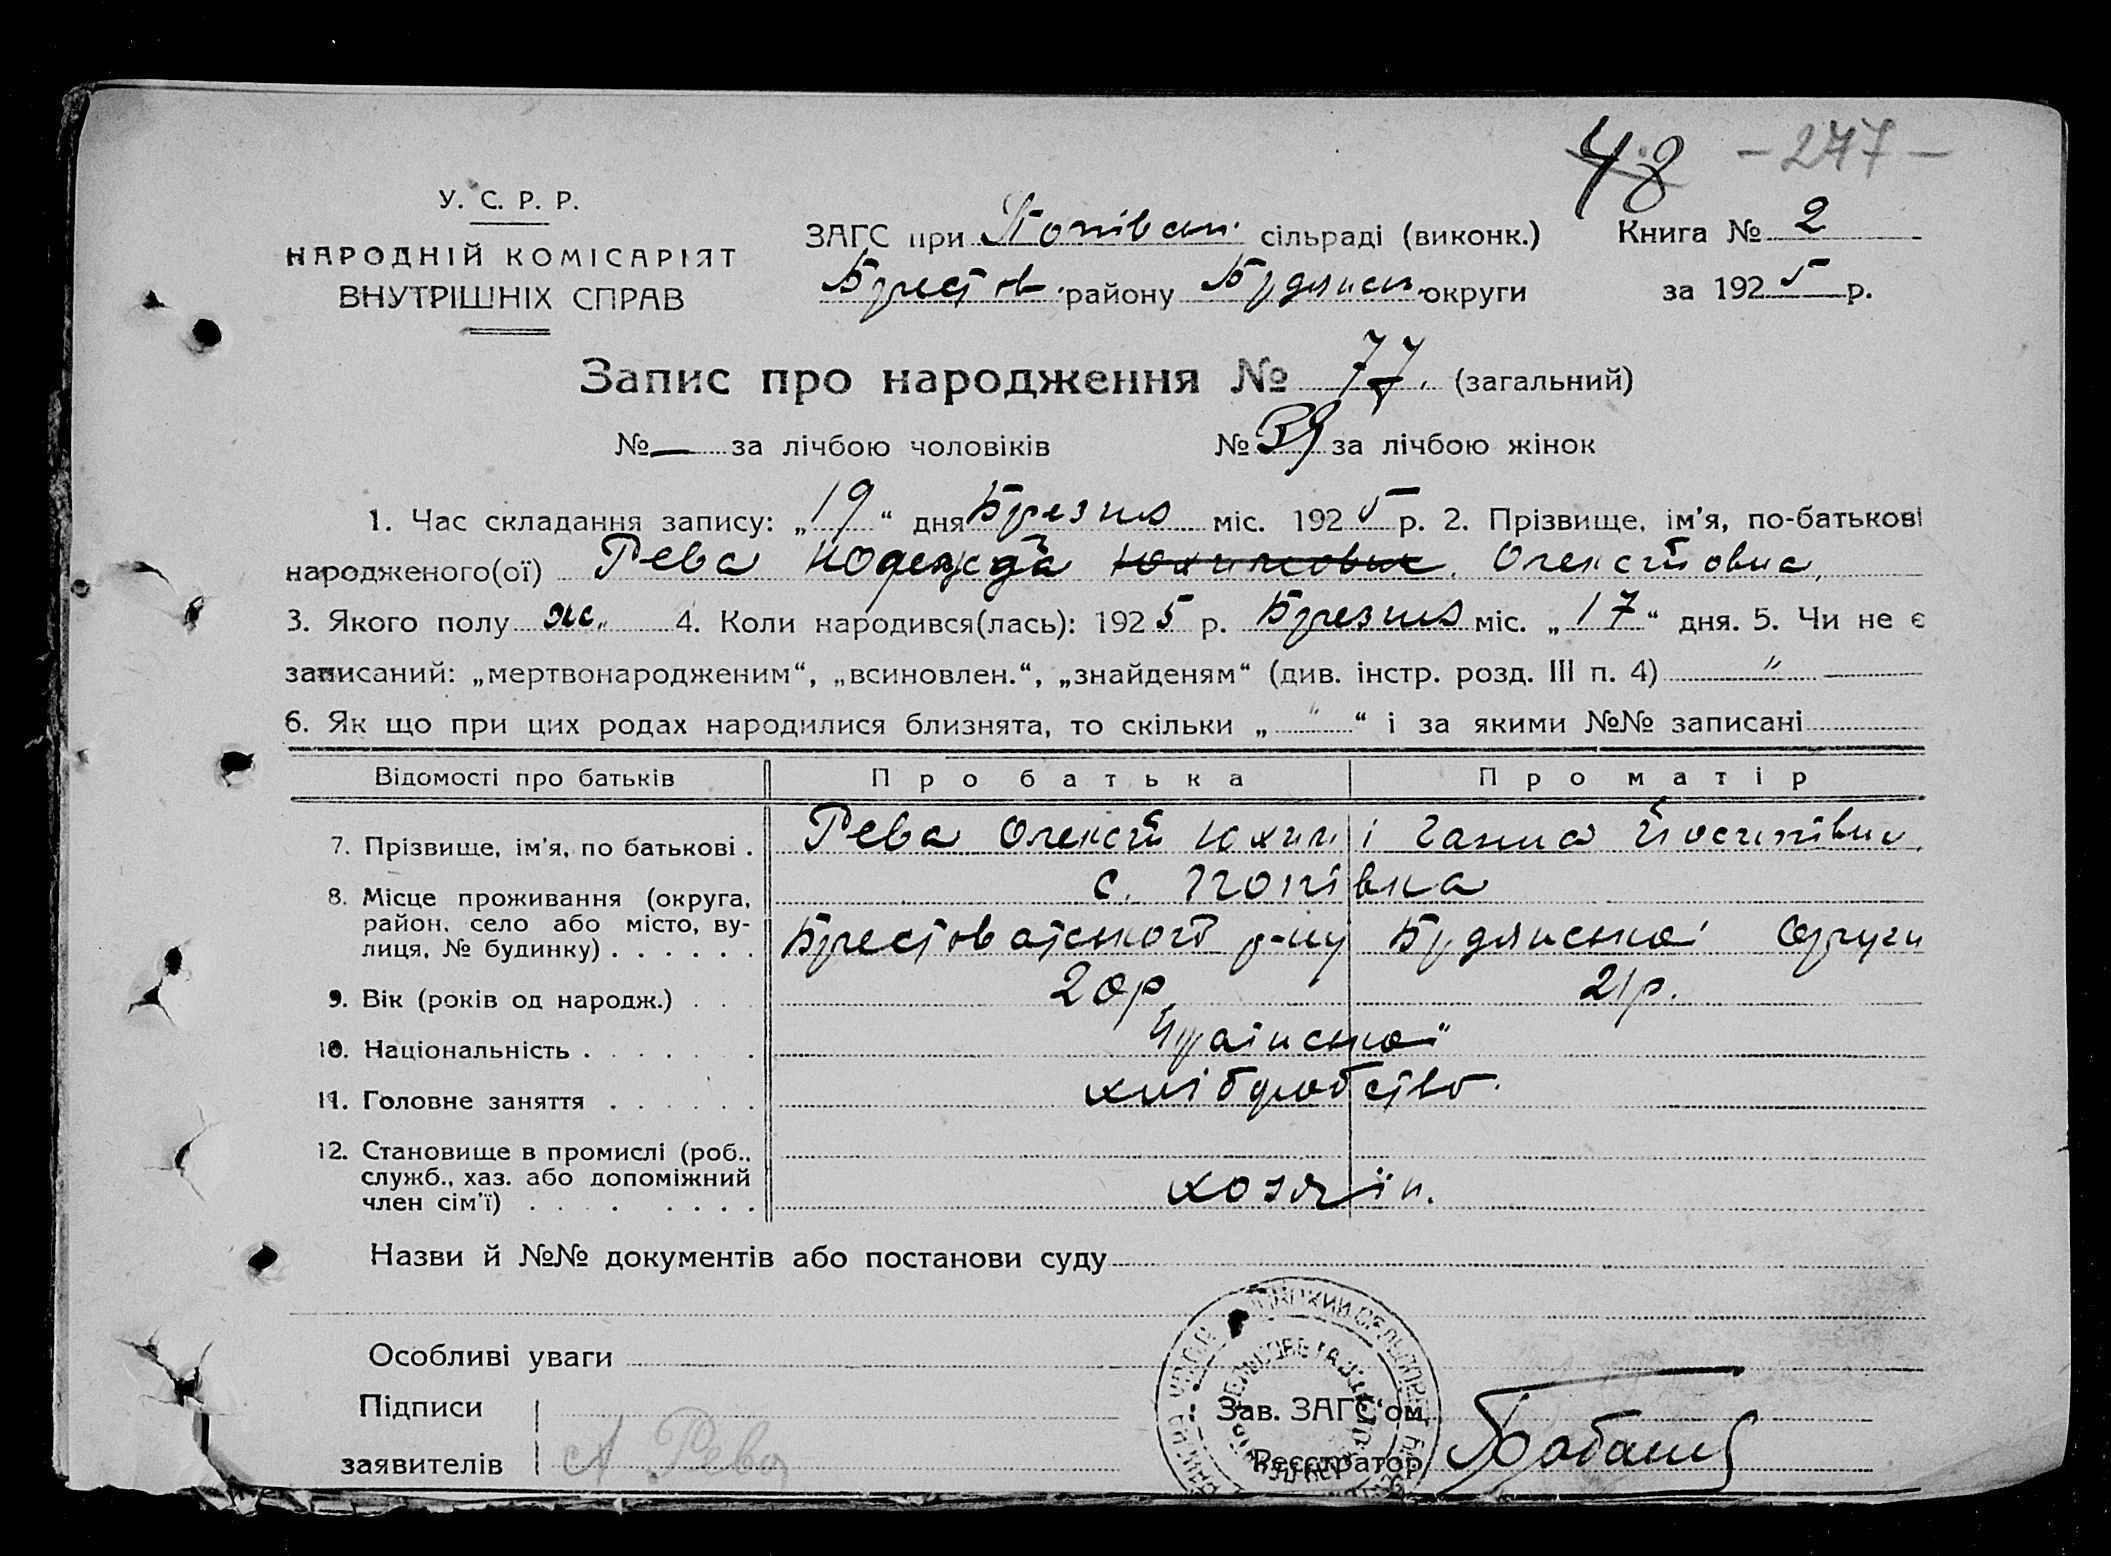 48 - 277 -
У. С. Р. Р.
НАРОДНІЙ КОМІСАРІЯТ
ВНУТРІШНІХ СПРАВ
ЗАГС при Попівськ. сільраді (виконк.) Книга № 2
Брестов. району Брдянськ. округи за 1925 р.
Запис про народження № 77. (загальний)
№ — за лічбою чоловіків № 39 за лічбою жінок
1. Час складання запису: „19“ дня Брезня міс. 1925 р. 2. Прізвище, ім'я, по-батькові
народженого(ої) Рева Надежда Юхимовна. Олексіївна,
3. Якого полу ж. 4. Коли народився(лась): 1925 р. Брезня міс. „17“ дня. 5. Чи не є
записаний: „мертвонародженим“, „всиновлен.“, „знайденям“ (див. інстр. розд. III п. 4) "
6. Як що при цих родах народилися близнята, то скільки „ " “ і за якими №№ записані
Відомості про батьків Про батька Про матір
7. Прізвище, ім'я, по батькові . Рева Олексій Юхим і Ганна Йосипівна
8. Місце проживання (округа, с. Попівка
район, село або місто, ву-
лиця, № будинку) . . . . . . Брестоватського р-ну Брдянської Округи
9. Вік (років од народж.) . . . 20р. 21р.
10. Національність . . . . . . Української
11. Головне заняття . . . . . . хліборобство.
12. Становище в промислі (роб.,
служб., хаз. або допоміжний хозяїн.
член сім'ї) . . . . . . . .
Назви й №№ документів або постанови суду
Особливі уваги
Підписи Зав. ЗАГС'ом
заявителів А Рева Реєстратор